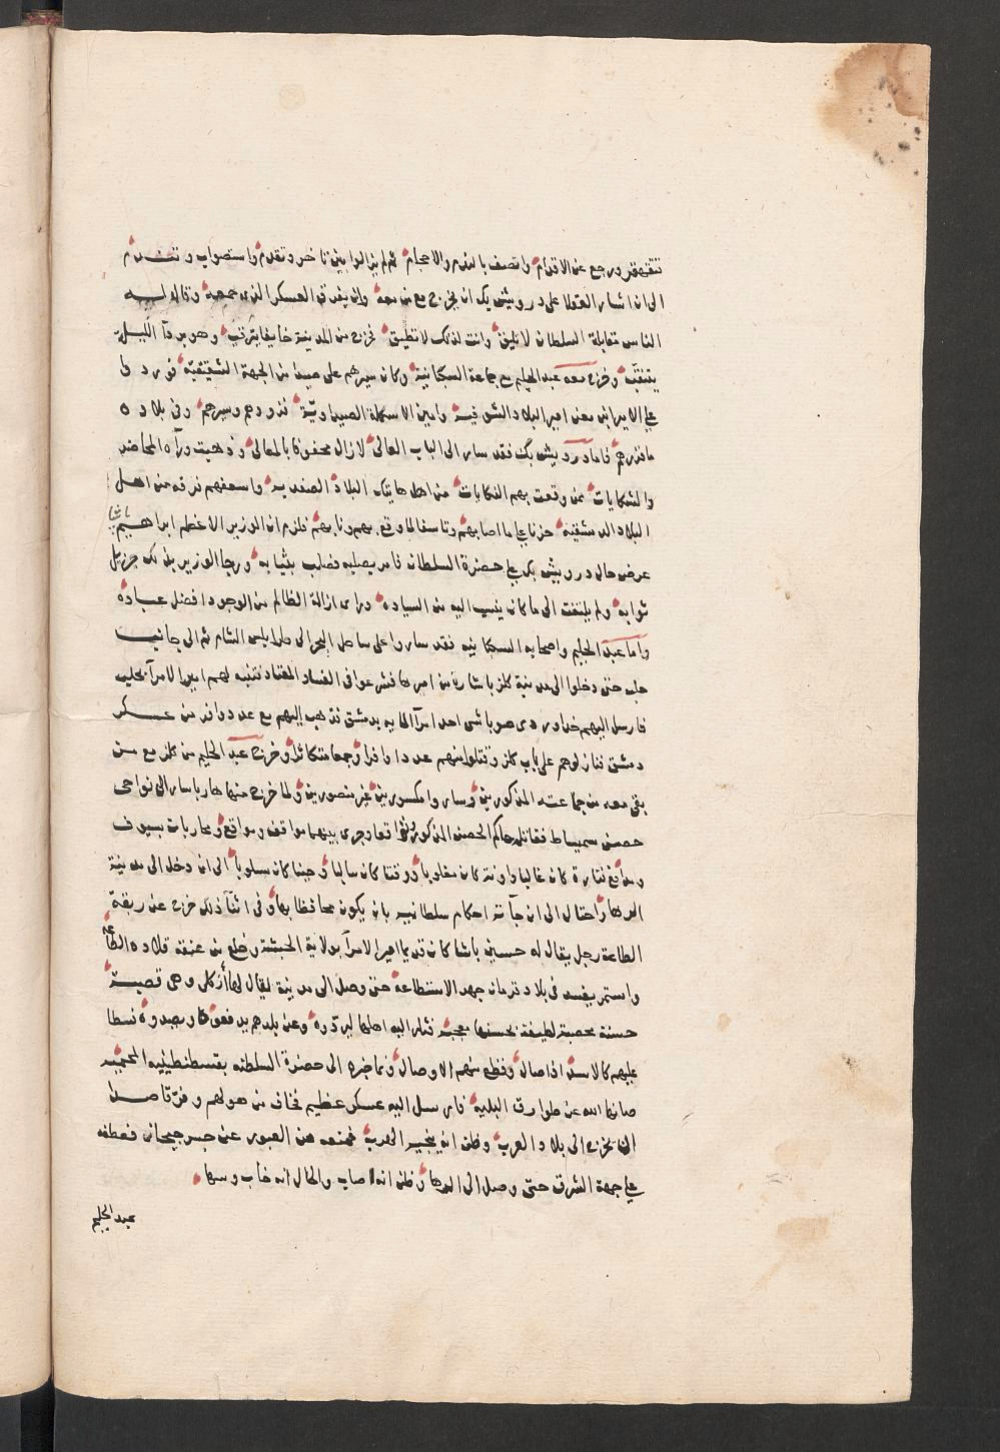 تتقهقر ورجع عن الاقدام واتصف بالندم والاحجام ثم لم يزالوا بين تاخر وتقدم واستصواب وتندم
الى ان اشار العقلا على درويش بك ان يخرج مع من معه وان يفرق العسكر الذى جمعه وقال له
الناس مقابلة السلطان لا تليق وانت لذلك لا تطيق فخرج من المدينة خايفا يترقب وهو برداء الليل
يتنقب وخرج معه عبد الحليم مع جماعة السكبانية وكان سيرهم على صيدا من الجهة الشقيقية فورد وا
على الامير ابن معن امير البلاد الشوفية وامين الاسكلة الصيداوية فزودهم وسيرهم وفى بلاده
ما فاما درويش بك فقد سار الى الباب العالى لازال محفوفا بالمعالى وذهبت وراه المحاضر
والشكايات ممن وقعت بهم النكايات من اهل هاتيك البلاد الصفدية واسعفهم فرقه من اهل
البلاد الدمشقية حزنا على ما اصابهم وتاسفا لما وقع بهم ونابهم فلزم ان الوزير الاعظم ابراهيم باشا
عرض حال درويش بك على حضرة السلطان فامر بصلبه فصلب بثيابه ورجا الوزير بذلك جزيل
ثوابه ولم يلتفت الى ما كان ينسب اليه من السياده وراى ازالة الظالم من الوجود افضل عباده
واما عبد الحليم واصحابه السكبانيه فقد ساروا على ساحل البحر الى طرابلس الشام ثم الى جانب
حلب حتى دخلوا الى مدينة كلز باشارة من اميرها فشرعوا فى الفساد المعتاد فتنبه لهم امير الامرآ بحلب
فارسل اليهم خداوردى صوباشى احد امرآ الطايفه بدمشق فذهب اليهم مع عدد وافر من عسكر
دمشق فنازلوهم على باب كلز وقتلوا منهم عددا وافرا وجمعا متكاثرا وخرج عبد الحليم من كلز مع من
بقى معه من جماعته المذكورين وساروا مكسورين غير منصورين ولما خرج منها هاربا سار الى نواحى
حصن سميساط فقاتل حاكم الحصن المذكور وجرى بينهما مواقف ومواقع ومحاربات بسيوف
ومدافع فتارة كان غالبا واونة كان مغلوبا ووقتا كان سالبا وحينا كان مسلوبا الى ان دخل الى مدينة
الرها واحتال الى ان جآته احكام سلطانيه بان يكون محافظا بها وفى اثنآ ذلك خرج عن ربقة
الطاعة رجل يقال له حسين باشا كان قديما امير الامرآ بولاية الحبشة وخلع من عنقه قلادة الطاعه
واستمر يفسد فى بلاد قرمان جهد الاستطاعة حتى وصل الى مدينة يقال لها أركلى وهى قصبة
حسنة محصنة لطيفة بحسنها معجبة فثار اليه اهلها ليردوه وعن بلدهم يدفعوه ويصدوه فسطا
عليهم كالاسد اذا صال وقطع منهم الاوصال ونما خبره الى حضرة السلطنه بقسطنطينيه المحميه
صانها الله عن طوارق البليه فارسل اليه عسكر عظيم فخاف من هولهم وفر قاصدا
ان يخرج الى بلاد العرب وظن ان ينجيه الهرب فمنعه من العبور عن جسر جيحان فعطف
على جهة الشرق حتى وصل الى الرها وظن انه اصاب والحال انه خاب وسها
عبد الحليم